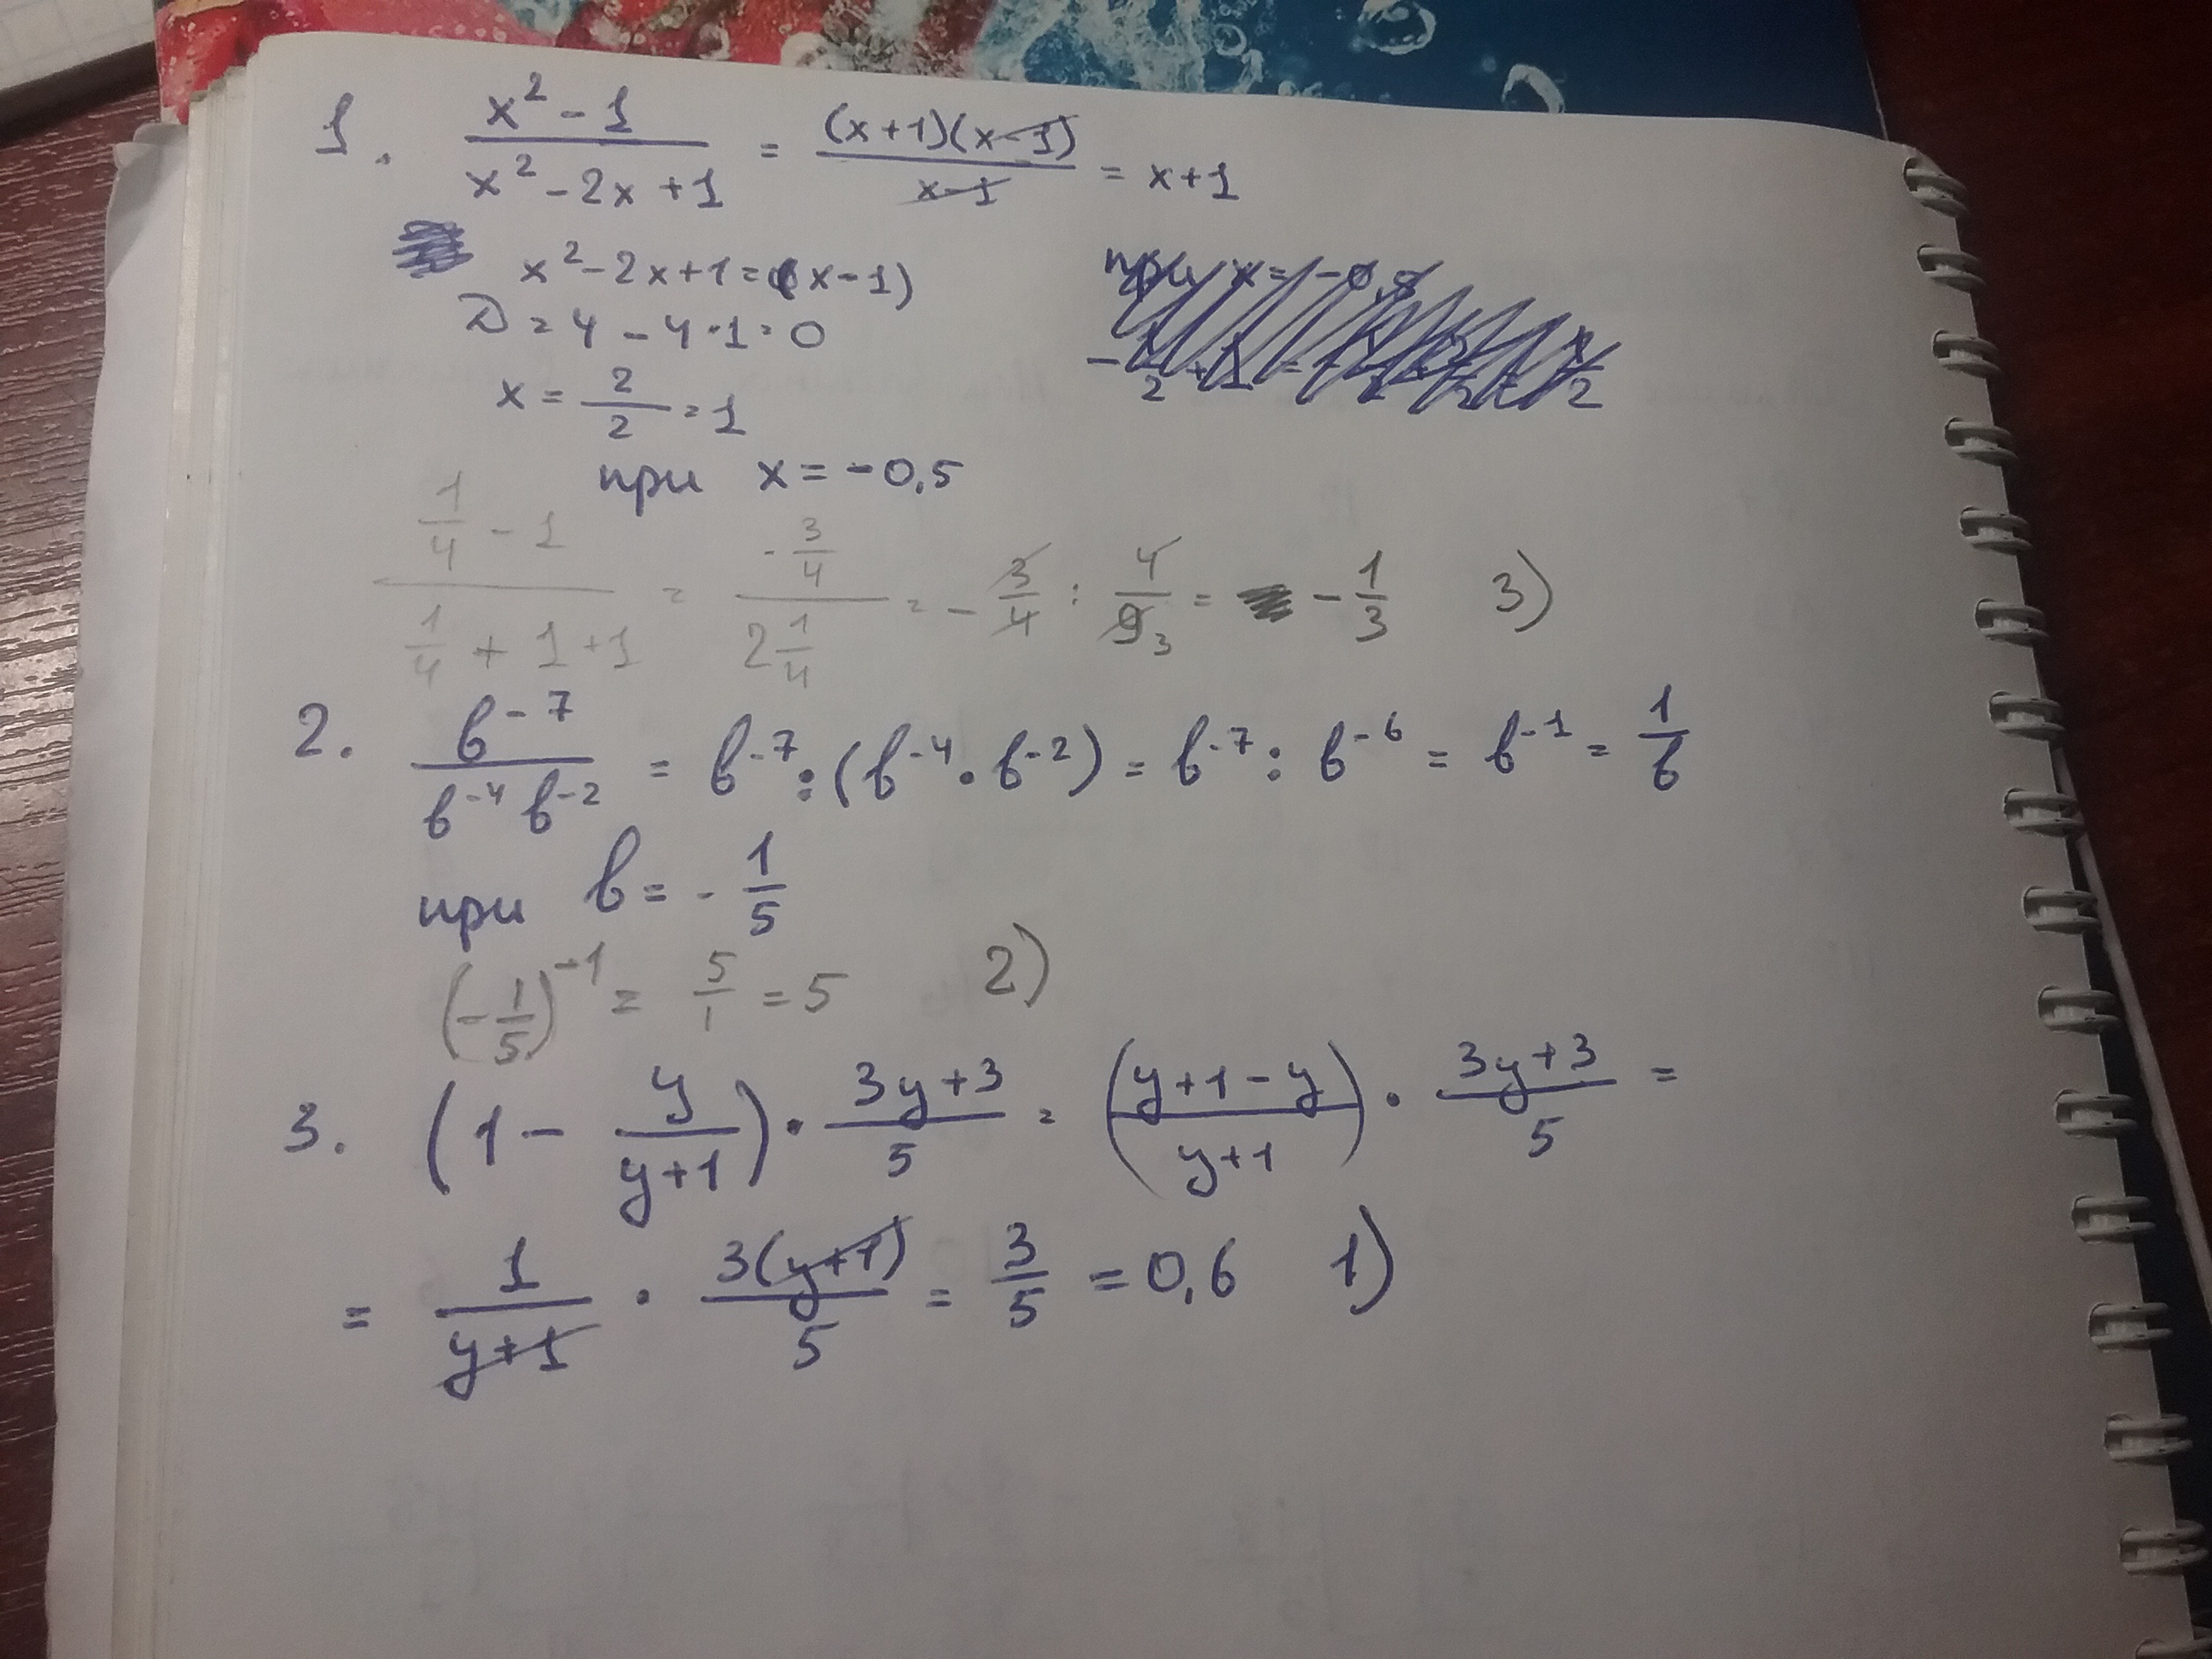 1. (x² - 1)/(x² - 2x + 1) = ((x+1)(x-1))/(x-1) = x+1
x² - 2x + 1 = (x - 1)
D = 4 - 4·1 = 0
x = 2/2 = 1
при x = -0,5
(1/4 - 1)/(1/4 + 1 + 1) = (-3/4)/(2 1/4) = - 3/4 : 4/9 3 = - 1/3 3)
2. b⁻⁷/(b⁻⁴ b⁻²) = b⁻⁷ : (b⁻⁴ · b⁻²) = b⁻⁷ : b⁻⁶ = b⁻¹ = 1/b
при b = - 1/5
(-1/5)⁻¹ = 5/1 = 5 2)
3. (1 - y/(y+1)) · (3y+3)/5 = ((y+1-y)/(y+1)) · (3y+3)/5 =
= 1/(y+1) · 3(y+1)/5 = 3/5 = 0,6 1)